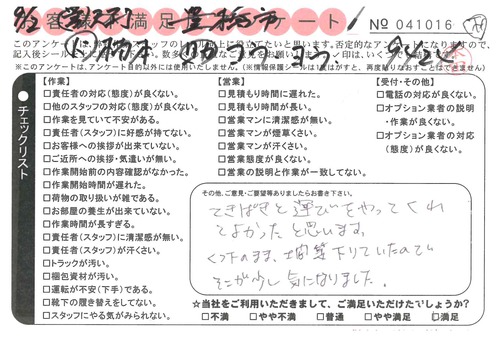 お客様満足アンケート!
豊橋市
№ 041016
このアンケートは、
※このアンケートは、アンケート目的以外には使用いたしません。(※情報保護シールは1度はがすと、再度貼りなおすことはできません)
チェックリスト
【作業】
□責任者の対応(態度)が良くない。
□他のスタッフの対応(態度)が良くない。
□作業を見ていて不安がある。
□責任者(スタッフ)に好感が持てない。
□お客様への挨拶が出来ていない。
□ご近所への挨拶・気遣いが無い。
□作業開始前の内容確認がなかった。
□作業開始時間が遅れた。
□荷物の取り扱いが雑である。
□お部屋の養生が出来ていない。
□作業時間が長すぎる。
□責任者(スタッフ)に清潔感が無い。
□責任者(スタッフ)が汗くさい。
□トラックが汚い。
□梱包資材が汚い。
□運転が不安(下手)である。
□靴下の履き替えをしてない。
□スタッフにやる気がみられない。
【営業】
□見積もり時間に遅れた。
□見積もり時間が長い。
□営業マンに清潔感が無い。
□営業マンが煙草くさい。
□営業マンが汗くさい。
□営業態度が良くない。
□営業の説明と作業が一致してない。
【受付・その他】
□電話の対応が良くない。
□オプション業者の説明
・作業が良くない。
□オプション業者の対応
(態度)が良くない。
その他、ご意見・ご要望等ありましたらお書き下さい。
てきぱきと運びをやってくれ
てよかったと思います。
くつのまま、下りていたので
そこが少し気になりました。
☆当社をご利用いただきまして、ご満足いただけたでしょうか?
□不満 □やや不満 □普通 □やや満足 □満足